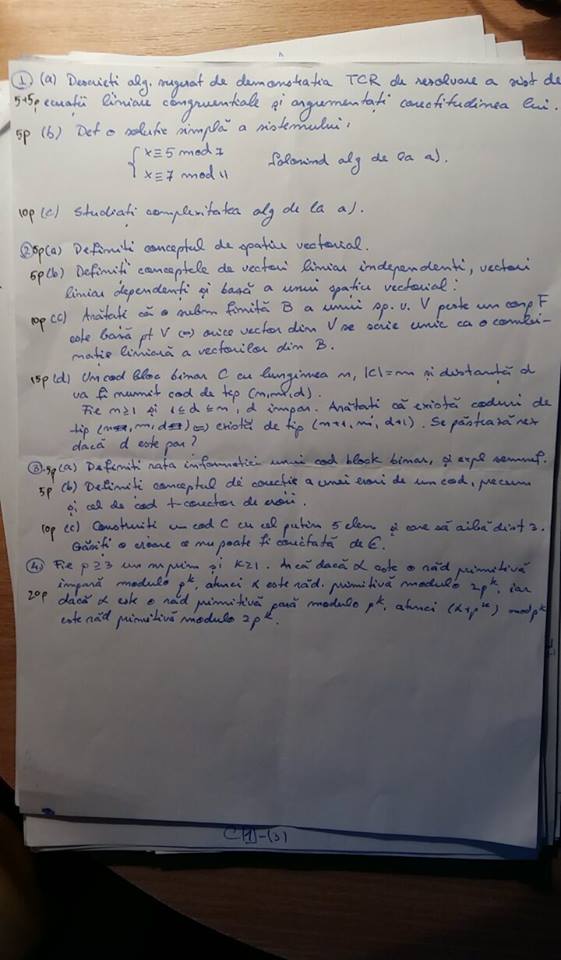 ① (a) Descrieti alg. sugerat de demonstratia TCR de rezolvare a sist de
5+5p ecuații liniare congruentiale și argumentați corectitudinea lui.
5p (b) Det o solutie simplă a sistemului:
{ x ≡ 5 mod 7
x ≡ 7 mod 11 folosind alg de la a).
10p (c) Studiați complexitatea alg de la a).
② 5p (a) Definiti conceptul de spatiu vectorial.
5p (b) Definiti conceptele de vectori liniar independenti, vectori
liniar dependenți și bază a unui spatiu vectorial.
10p (c) Arătati că o subm finită B a unui sp. v. V peste un corp F
este bază pt V (=) orice vector din V se scrie unic ca o combi-
nație liniară a vectorilor din B.
15p (d) Un cod bloc binar C cu lungimea n, |C|=m și distanță d
va fi numit cod de tip (n,m,d).
Fie n≥1 și 1≤d≤n, d impar. Arătati că există coduri de
tip (n, m, d) (=) există de tip (n+1, m, d+1). Se păstrează rez
dacă d este par?
③ 5p (a) Definiti rata informatiei unui cod block binar, și expl semnif.
5p (b) Definiti conceptul de corectie a unei erori de un cod, precum
și cel de cod t-corector de erori.
10p (c) Construiti un cod C cu cel putin 5 elem și care să aibă dist 3.
Găsiti o eroare ce nu poate fi corectată de C.
④ Fie p≥3 un nr prim și k≥1. că dacă α este o răd primitivă
impară modulo p^k, atunci α este răd. primitivă modulo 2p^k, iar
20p dacă α este o răd primitivă pară modulo p^k, atunci (α+p^k) mod p^k
este răd primitivă modulo 2p^k.